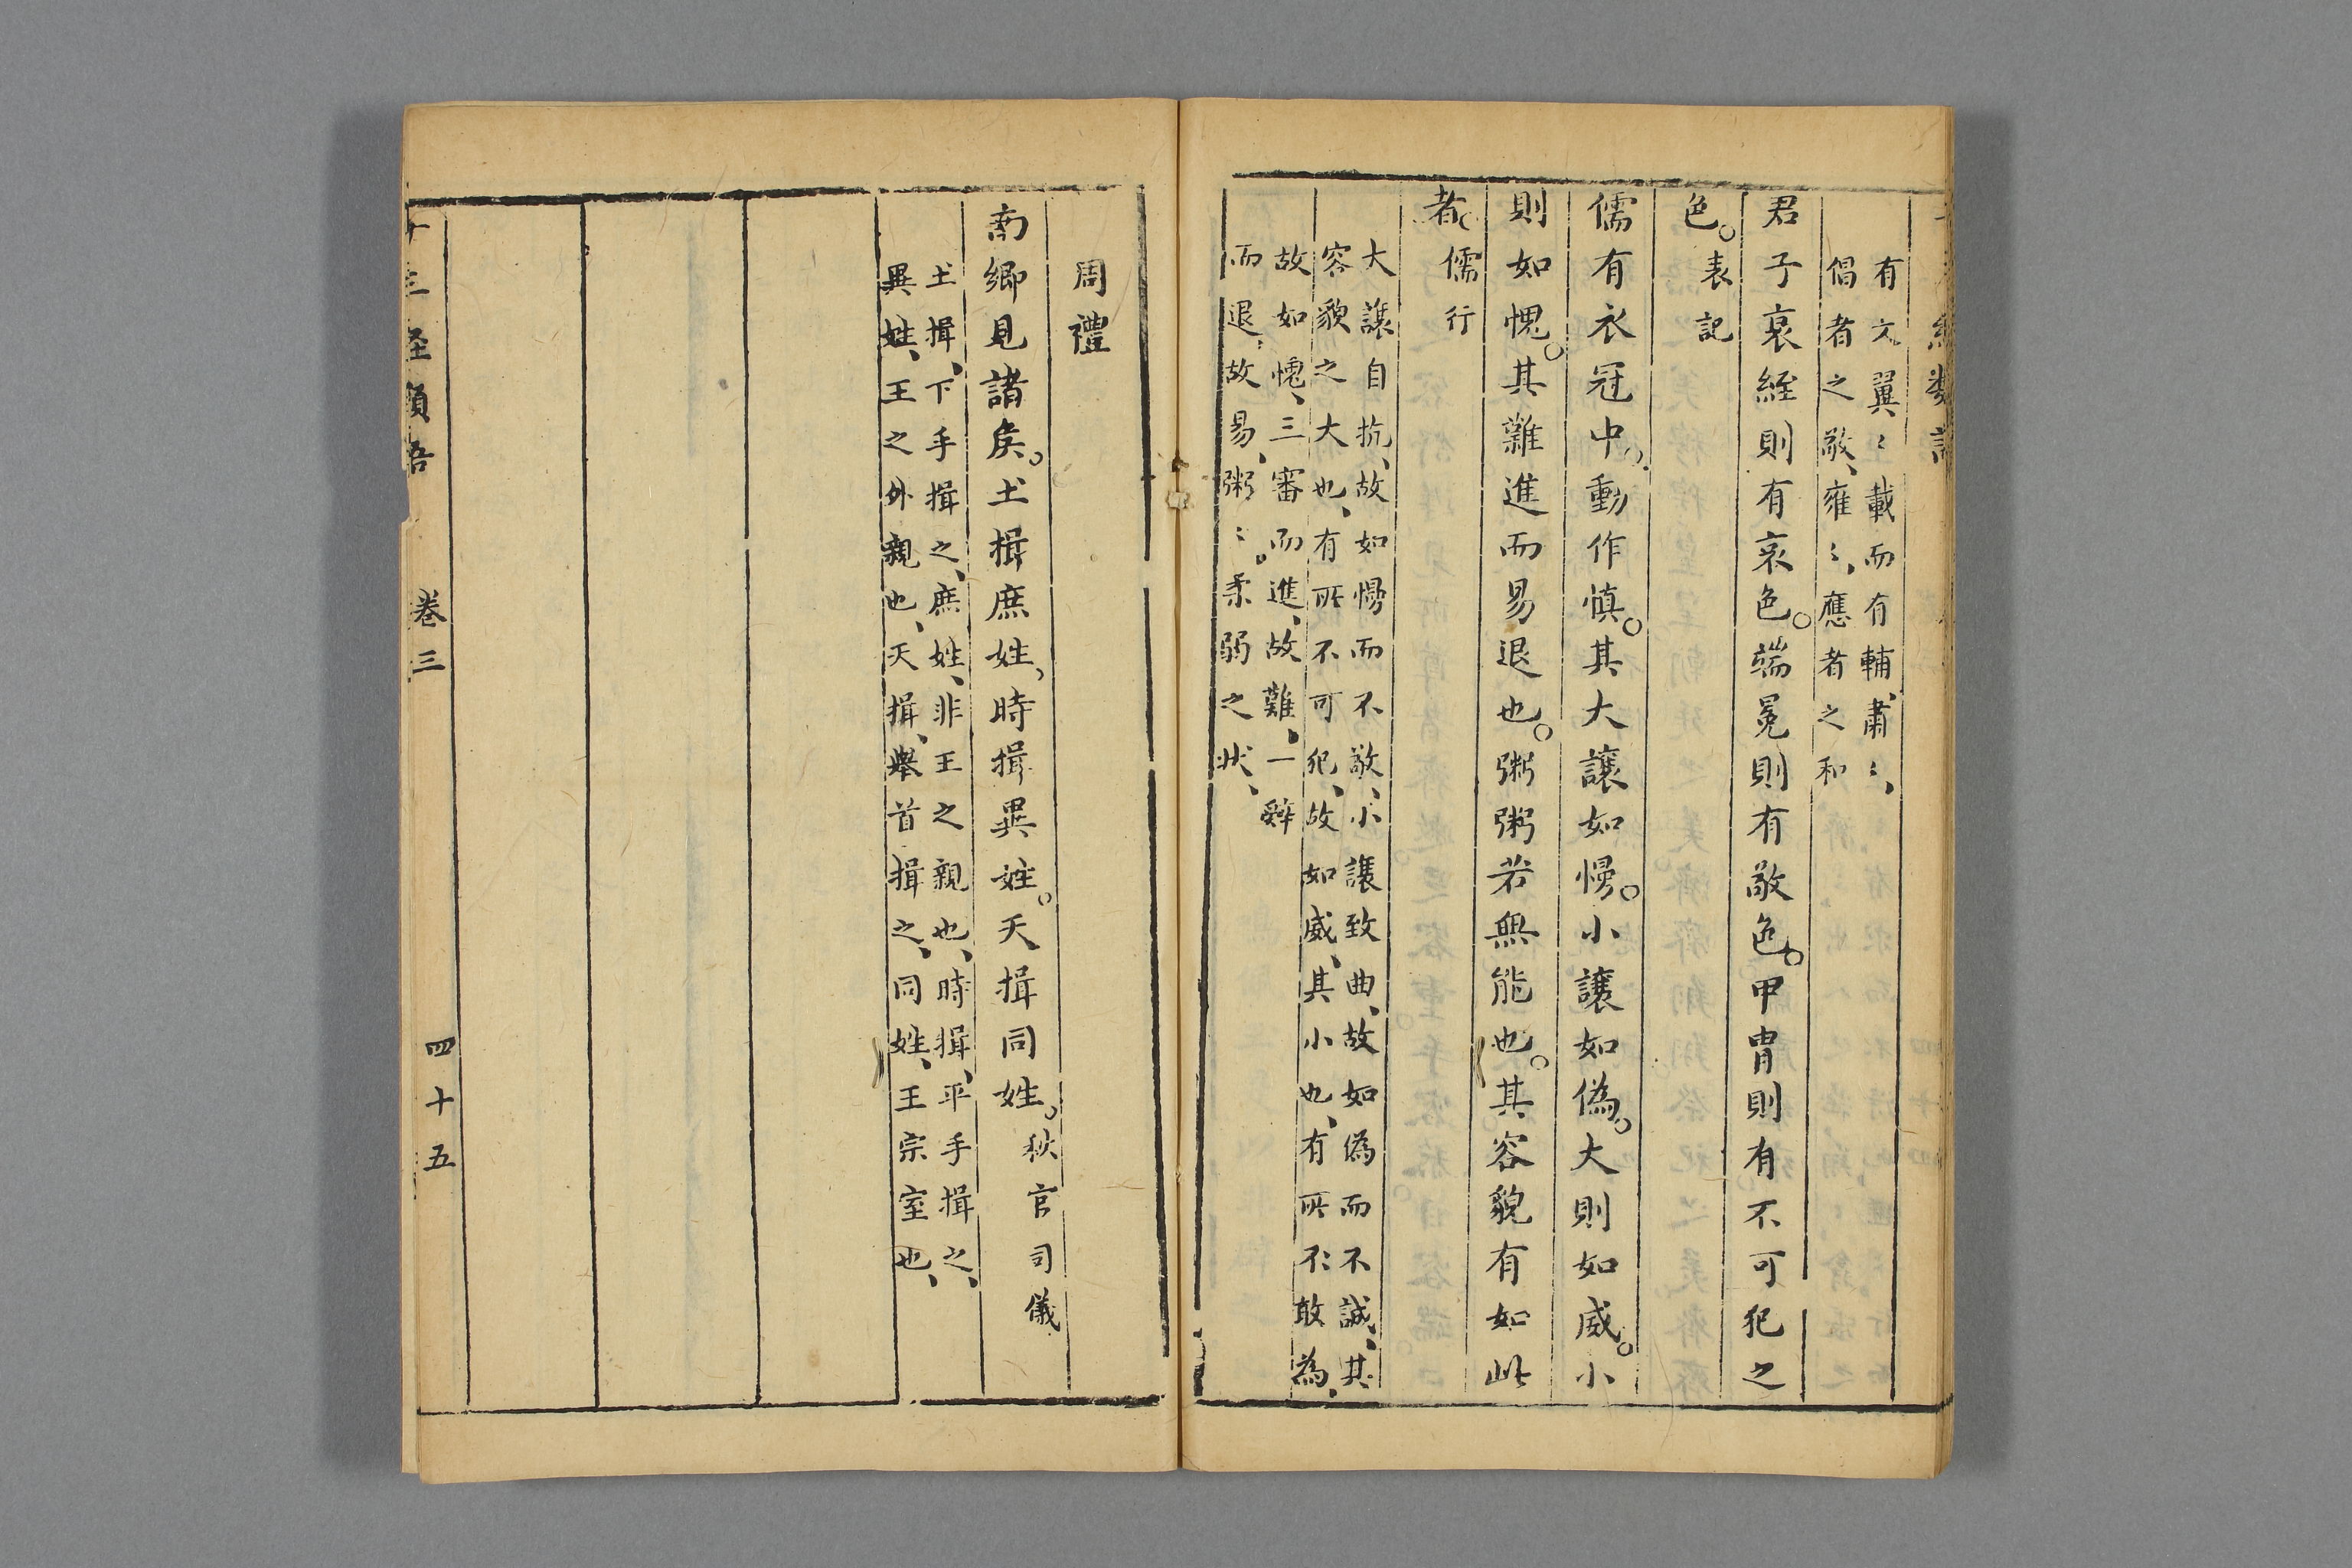 有文翼〻載而有輔、肅〻、
倡者之敬、雍〻、應者之和
君子衰絰則有哀色。端冕則有敬色。甲冑則有不可犯之
色。表記
儒有衣冠中。動作慎。其大讓如慢。小讓如偽。大則如威。小
則如愧。其難進而易退也。粥粥若無能也。其容貌有如此
者。儒行
大讓自抗、故如慢而不敬、小讓致曲、故如偽而不誠、其
容貌之大也、有所不可犯、故如威、其小也、有所不敢為、
故如愧、三審而進、故難、一辭
而退、故易、粥〻。柔弱之狀、
周禮
南鄉見諸矦。土揖庶姓、時揖異姓。天揖同姓。秋官司儀
土揖、下手揖之、庶姓、非王之親也、時揖、平手揖之、
異姓、王之外親也、天揖、舉首揖之、同姓、王宗室也、
十三経類語 卷三 四十五